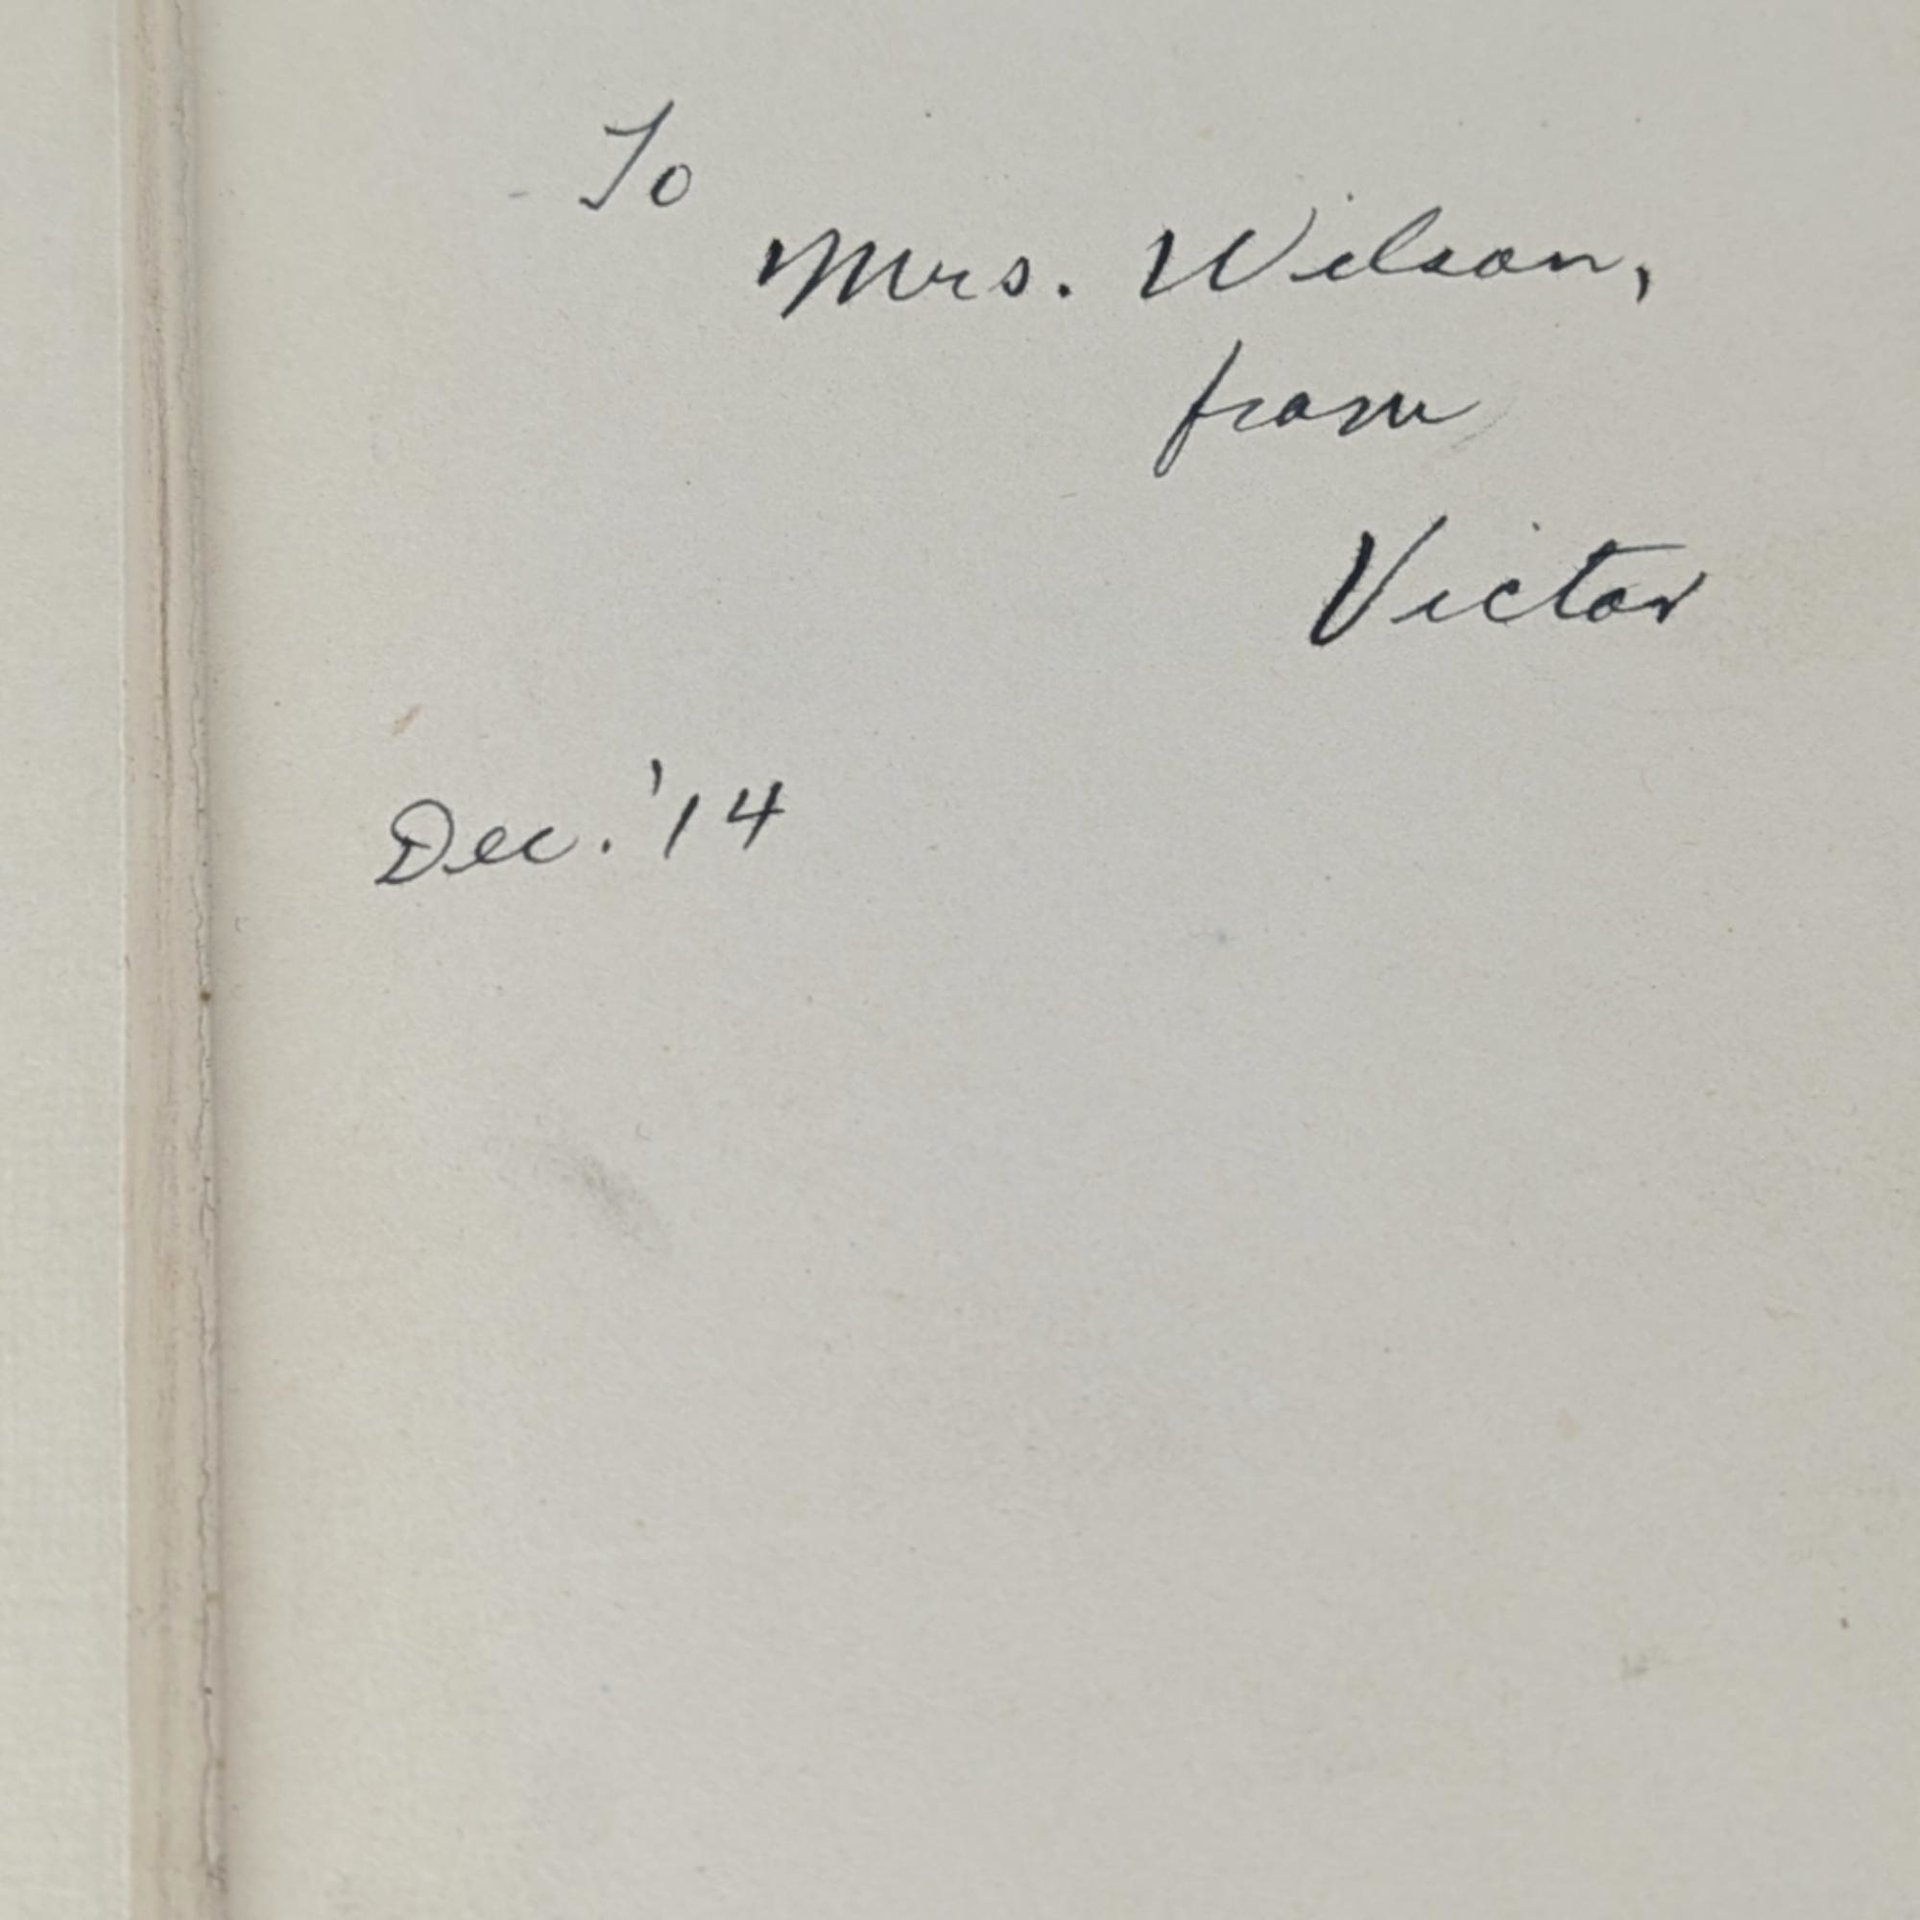 To
Mrs. Wilson,
from
Victor
Dec. '14